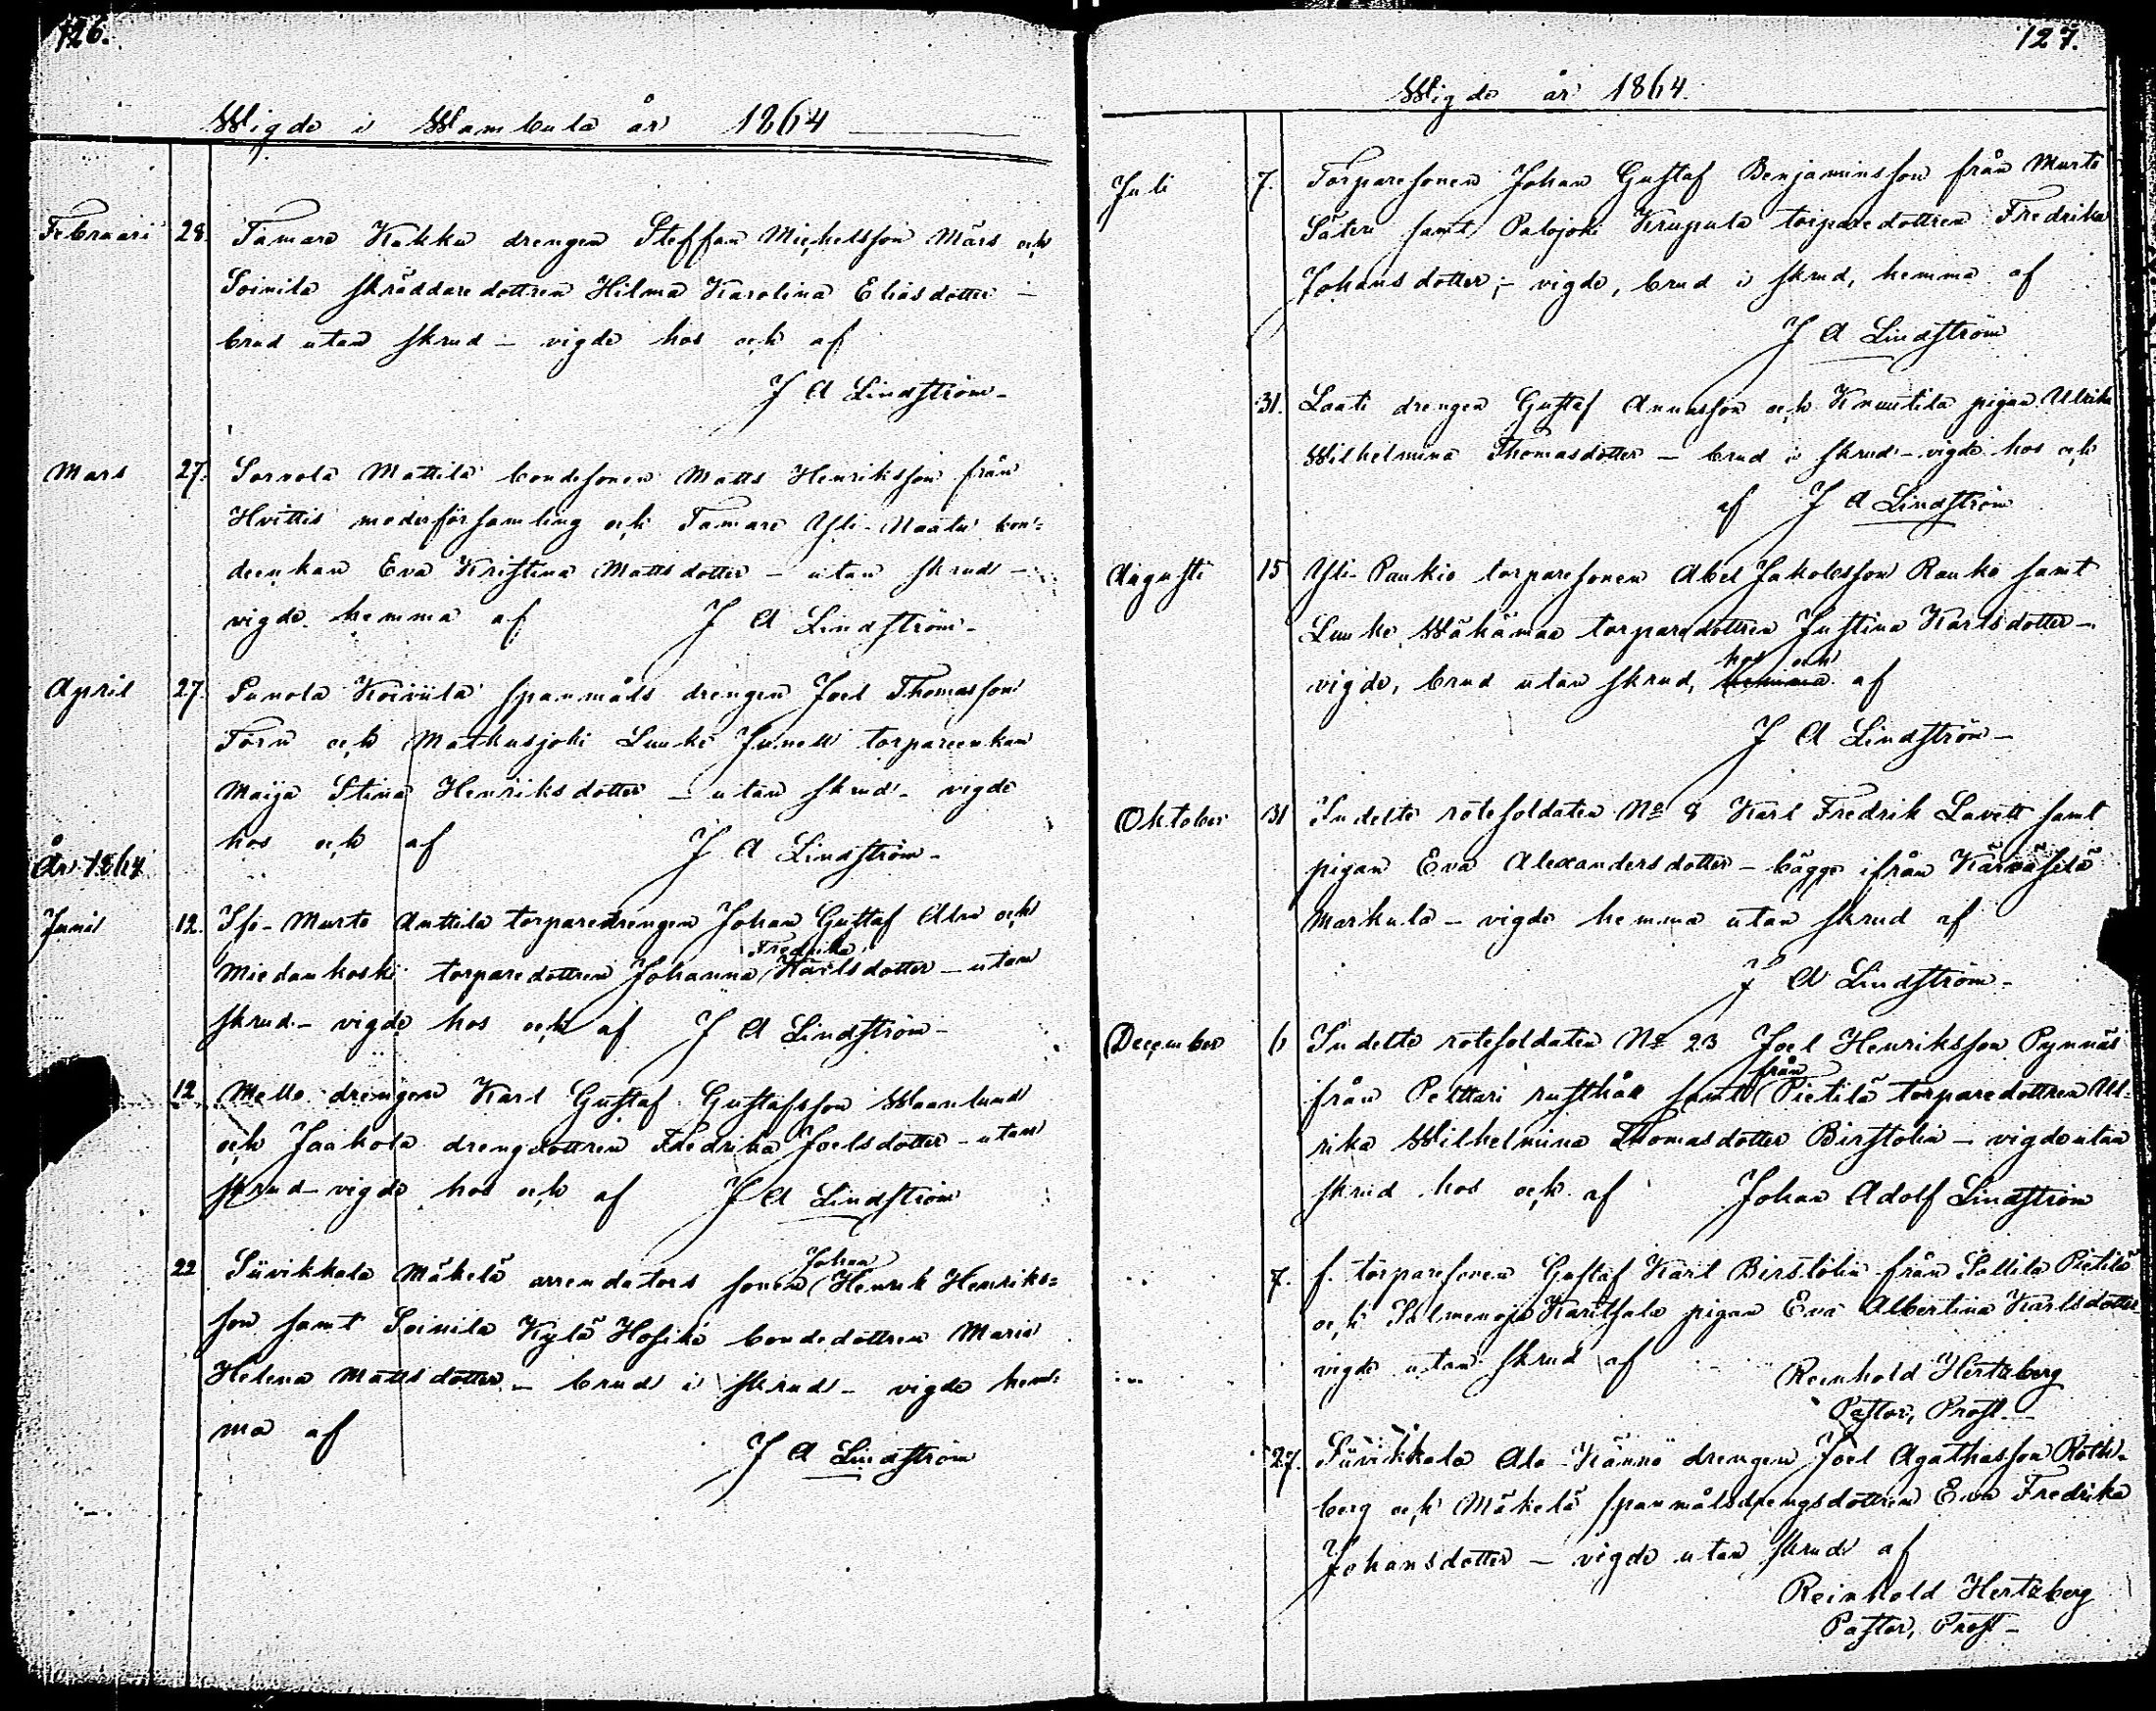 126.
Wigde i Wambula år 1864
Februari 28. Tamare Kukku drengen Steffan Michelsson Mårs och
Soinila skräddaredottren Hilma Karolina Eliasdotter –
brud utan skrud – vigde hos och af
J A Lindström –
Mars 27. Sorvola Mattila bondesonen Matts Henriksson från
Hvittis moderförsamling och Tamare Yli-Naatu bon=
deenkan Eva Kristina Mattsdotter – utan skrud –
vigde hemma af J A Lindström –
April 27. Punola Koivula spanmåls drengen Joel Thomasson
Törn och Matkusjoki Luuke Junell torpareenkan
Maija Stina Henriksdotter – utan skrud – vigde
hos och af J A Lindström –
År 1864
Junii 12. Iso-Murto Anttila torparedrengen Johan Gustaf och
Miedankoski torparedottren Johanna Fredrika Karlsdotter – utan
skrud – vigde hos och af J A Lindström –
12 Mello drengen Karl Gustaf Gustafsson Waanlund
och Jaakola drengdottren Fredrika Joelsdotter – utan
skrud – vigde hos och af J A Lindström
22 Siivikkala Mäkelä arrendators sonen Johan Henrik Henriks=
son samt Soinila Kylä Hosike bondedottren Maria
Helena Mattsdotter – brud i skrud – vigde hem=
ma af
J A Lindström
127.
Wigde år 1864.
Juli 7. Torparesonen Johan Gustaf Benjaminsson från Murto
Säteri samt Palojoki Krupula torparedottren Fredrika
Johansdotter; – vigde, brud i skrud, hemma af
J A Lindström
31. Laati drengen Gustaf Annasson och Knuutila pigan Ulrika
Wilhelmina Thomasdotter – brud i skrud – vigde hos och
af J A Lindström
Augusti 15 Yli-Paukio torparesonen Abel Jakobsson Rauko samt
Luuke Wähämaa torparedottren Justina Karlsdotter –
vigde, brud utan skrud, hos och hemma af
J A Lindström –
Oktober 31 Indelte rotesoldaten No 8 Karl Fredrik Lavett samt
pigan Eva Alexandersdotter – bägge ifrån Käräsilä
Markula – vigde hemma utan skrud af
J A Lindström –
December 6 Indelte rotesoldaten No 23 Joel Henriksson Pynnäs
från Pelttari rusthåll samt från Pietilä torparedottren Ul=
rika Wilhelmina Thomasdotter Birstolin – vigde utan
skrud hos och af Johan Adolf Lindström
7. f. torparesonen Gustaf Karl Birstolin från Sallila Pietilä
och Salmenoja Karitsala pigan Eva Albertina Karlsdotter
vigde utan skrud af Reinhold Hertzberg
Pastor, Prost –
27. Siivikkala Ala-Kännö drengen Joel Agathasson Roth-
berg och Mäkelä spanmålsdrengsdottren Eva Fredrika
Johansdotter – vigde utan skrud af
Reinhold Hertzberg
Pastor, Prost –